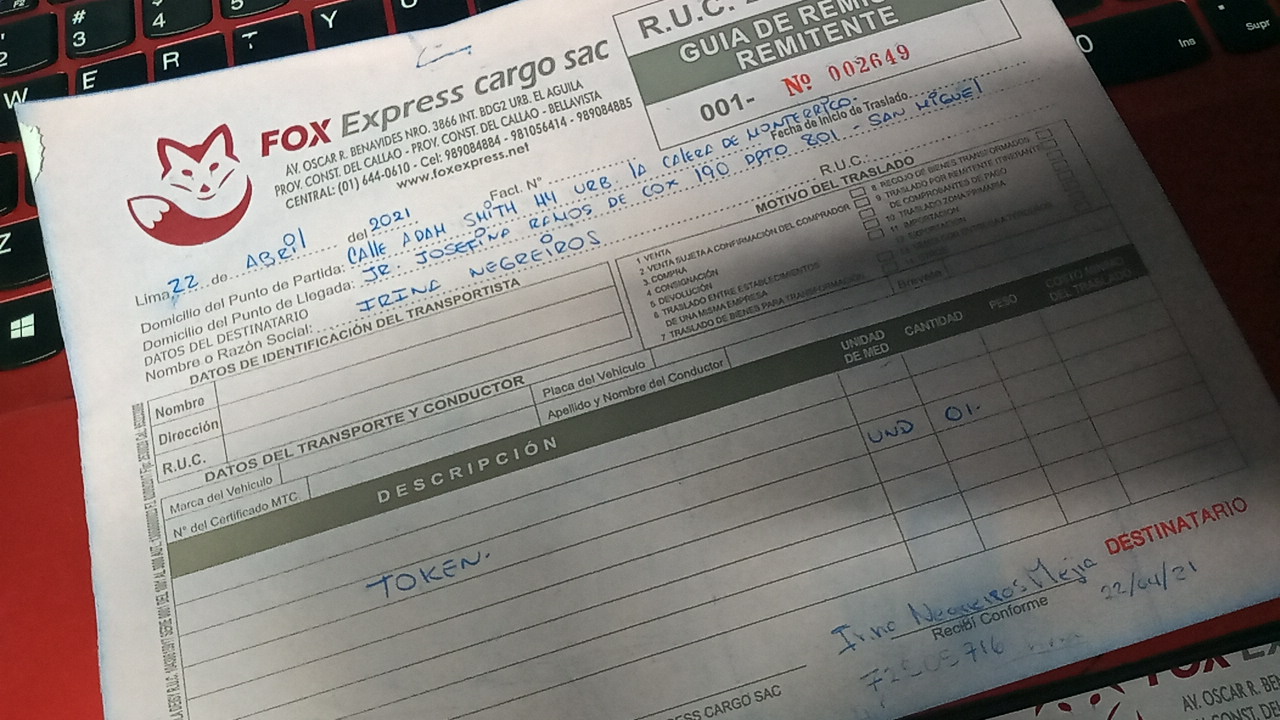 R.U.C.
GUIA DE REMI
REMITENTE
001- Nº 002649
FOX Express cargo sac
AV. OSCAR R. BENAVIDES NRO. 3866 INT. BDG2 URB. EL AGUILA
PROV. CONST. DEL CALLAO - PROV. CONST. DEL CALLAO - BELLAVISTA
CENTRAL: (01) 644-0610 - Cel: 989084884 - 981056414 - 989084885
www.foxexpress.net
Fact. N°
Fecha de Inicio de Traslado
Lima, 22 de ABRIl del 2021
Domicilio del Punto de Partida: CAllE ADAM SMITH 44 URB. lA CALERA DE MONTERRICO.
Domicilio del Punto de Llegada: JR. JOSEFINA RAMOS DE COX 190 DPTO 801 - SAN MIGUEl
DATOS DEL DESTINATARIO
Nombre o Razón Social: IRINA NEGREIROS
R.U.C.:
DATOS DE IDENTIFICACIÓN DEL TRANSPORTISTA
MOTIVO DEL TRASLADO
Nombre
Dirección
R.U.C.
1 VENTA
2 VENTA SUJETA A CONFIRMACIÓN DEL COMPRADOR
3. COMPRA
4 CONSIGNACIÓN
5 DEVOLUCIÓN
6 TRASLADO ENTRE ESTABLECIMIENTOS
DE UNA MISMA EMPRESA
7 TRASLADO DE BIENES PARA TRANSFORMACIÓN
8 RECOJO DE BIENES TRANSFORMADOS
9 TRASLADO POR REMITENTE ITINERANTE
DE COMPROBANTES DE PAGO
10 TRASLADO ZONA PRIMARIA
11 IMPORTACIÓN
DATOS DEL TRANSPORTE Y CONDUCTOR
Marca del Vehículo
Placa del Vehículo
Brevete
N° del Certificado MTC.
Apellido y Nombre del Conductor
DESCRIPCIÓN
UNIDAD
DE MED
CANTIDAD
PESO
TOKEN.
UND
01.
DESTINATARIO
Irina Negreiros Mejia
22/04/21
Recibí Conforme
72505716
ESS CARGO SAC
FOX E
AV. OSCAR R. BENA
PROV. CONST. D
#
3
4
5
2
W
E
R
T
Y
U
Z
0
Ins
Supr